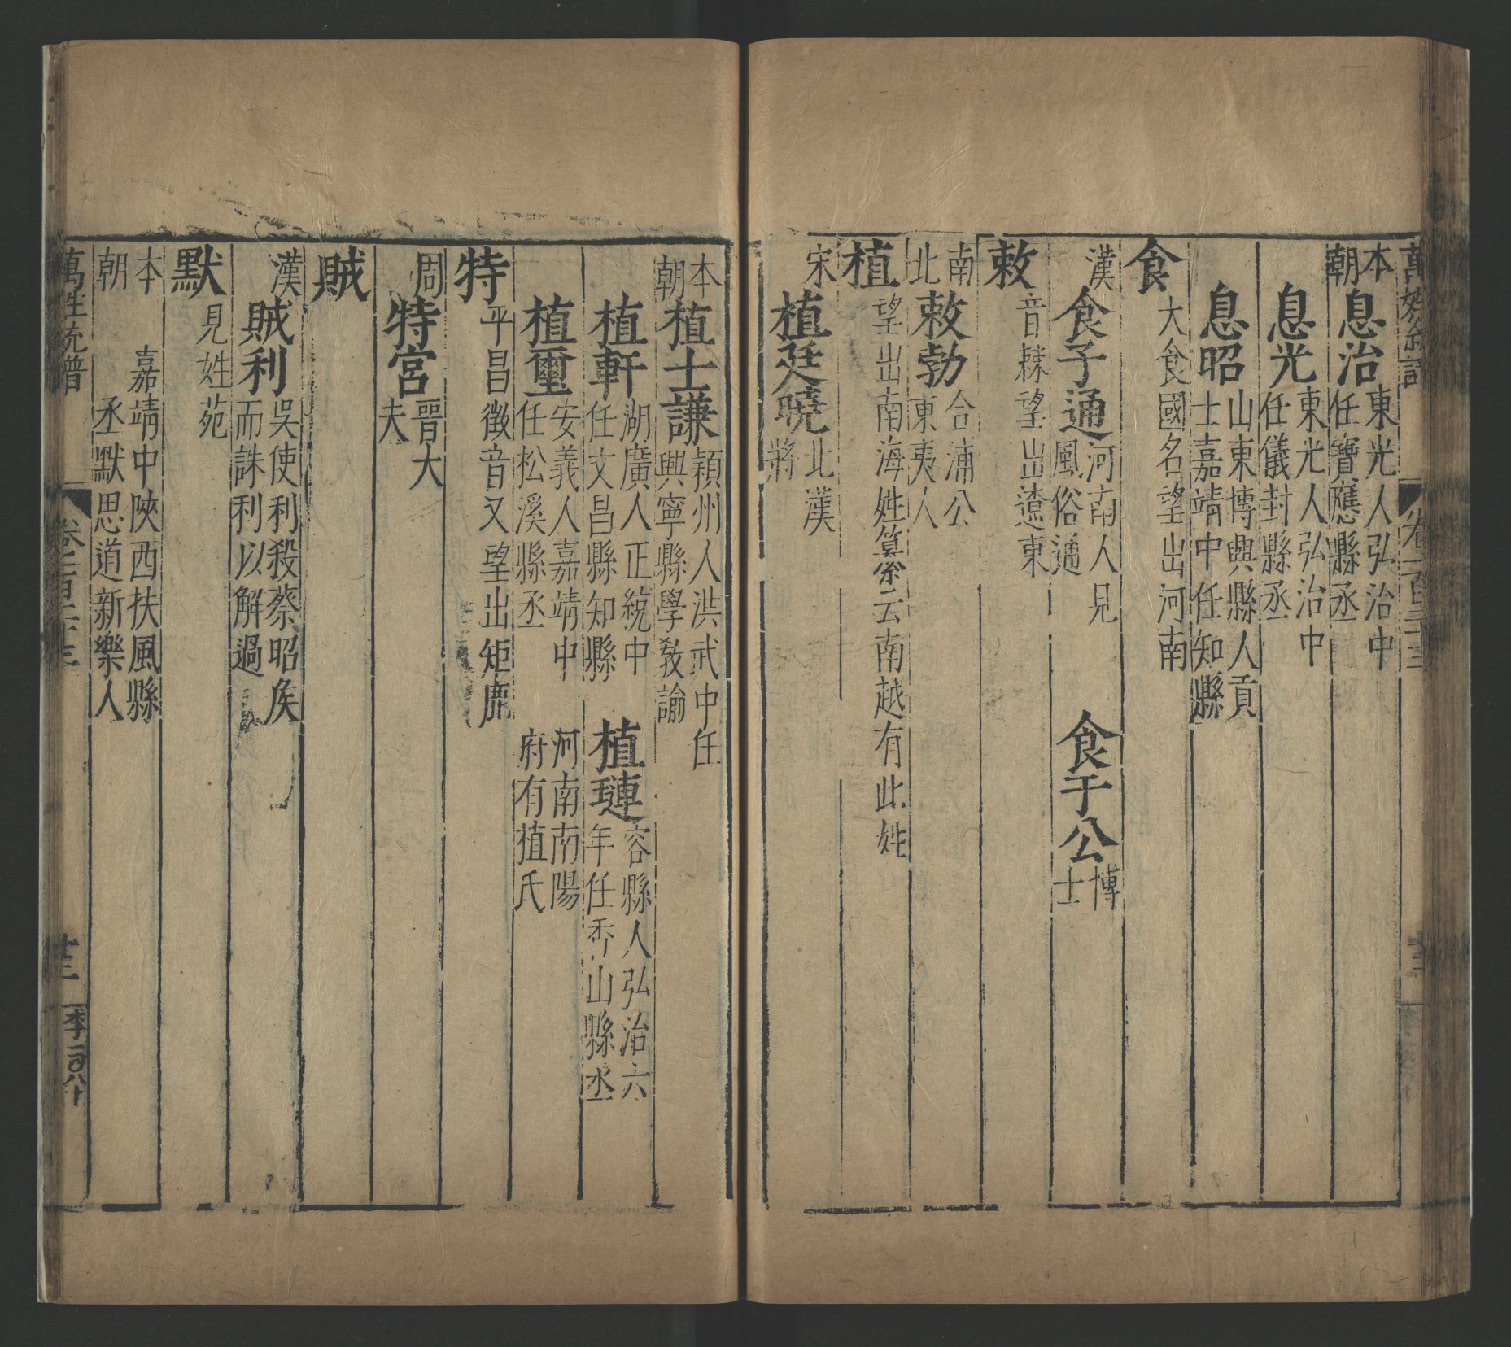 本朝 息治 東光人弘治中任寶應縣丞
息光 東光人弘治中任儀封縣丞
息昭 山東博興縣人貢士嘉靖中任知縣
食 大食國名望出河南
漢 食子通 河南人見風俗通 食于公 博士
敕 音棘望出遼東
南北 敕勃 合浦公東夷人
植 望出南海姓纂云南越有此姓
宋 植廷曉 北漢將
本朝 植士謙 潁州人洪武中任興寧縣學教諭
植軒 湖廣人正統中任文昌縣知縣 植璉 容縣人弘治六年任香山縣丞
植璽 安義人嘉靖中任松溪縣丞 河南南陽府有植氏
特 平昌徵音又望出矩鹿
周 特宮 晉大夫
賊
漢 賊利 吳使利殺蔡昭侯而誅利以解過
默 見姓苑
本朝 嘉靖中陝西扶風縣丞默思道新樂人
萬姓統譜 卷一百二十三 十三